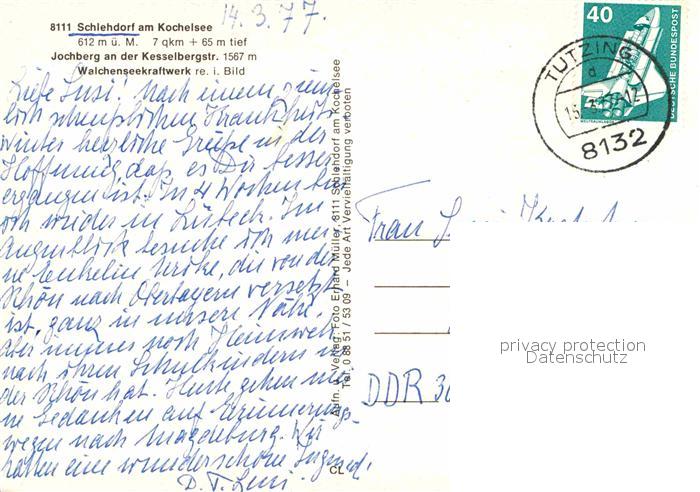 14.3.77.
8111 Schlehdorf am Kochelsee
612 m ü. M. 7 qkm + 65 m tief
Jochberg an der Kesselbergstr. 1567 m
Walchenseekraftwerk re. i. Bild
Liebe Lusi! Nach einem ziem
lich scheusslichen Krankheits
winter herzliche Grüße in der
Hoffnung, daß es Dir besser
ergangen ist. In 4 Wochen bin
ich wieder in Lübeck. Im
Augenblick besuche ich mei
ne Enkelin Urike, die von der
Schön nach Oberbayern versetzt
ist, ganz in unsere Nähe.
Aber immer noch Heimweh
nach ihren Schulkindern in
der Schön hat. Heute gehen mei
ne Gedanken auf Erinnerungs-
wegen nach Magdeburg. Wir
hatten eine wunderschöne Jugend!
D. T. Leni.
Aufn. u. Verlag: Foto Erhard Müller, 8111 Schlehdorf am Kochelsee
Tel. 0 88 51 / 53 09 – Jede Art Vervielfältigung verboten
CL
40
DEUTSCHE BUNDESPOST
TUTZING
d
8132
Frau
DDR 30
privacy protection
Datenschutz